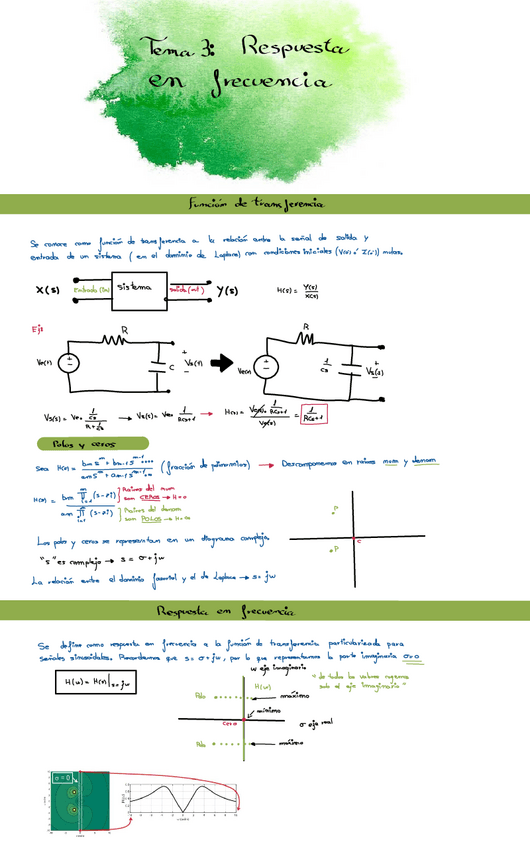 Tema 3: Respuesta
en frecuencia
Función de transferencia
Se conoce como función de transferencia a la relación entre la señal de salida y
entrada de un sistema (en el dominio de Laplace) con condiciones iniciales nulas.
X(s) entrada (in) sistema salida (out) Y(s)
H(s) = Y(s)/X(s)
Ej:
R
R
C
Vs(t)
1/Cs
Vs(s)
Ve(t)
Ve(s)
Vs(s) = Ve · (1/Cs)/(R + 1/Cs) → Vs(s) = Ve · 1/(RCs+1) → H(s) = (Ve(s) · 1/(RCs+1))/Ve(s) = 1/(RCs+1)
Polos y ceros
(fracción de polinomios) → Descomponemos en raíces num y denom
Raíces del num
son CEROS → H=0
Raíces del denom
son POLOS → H=∞
P
c
P
Los polos y ceros se representan en un diagrama complejo.
"s" es complejo → s = σ + jω
La relación entre el dominio fasorial y el de Laplace → s = jω
Respuesta en frecuencia
Se define como respuesta en frecuencia a la función de transferencia particularizada para
señales sinusoidales. Recordemos que s = σ + jω, por lo que representamos la parte imaginaria σ=0
ω eje imaginario
H(ω) = H(s)|s=jω
H(ω)
"de todos los valores cogemos
solo el eje imaginario"
Polo
máximo
mínimo
Cero
σ eje real
Polo
máximo
σ = 0